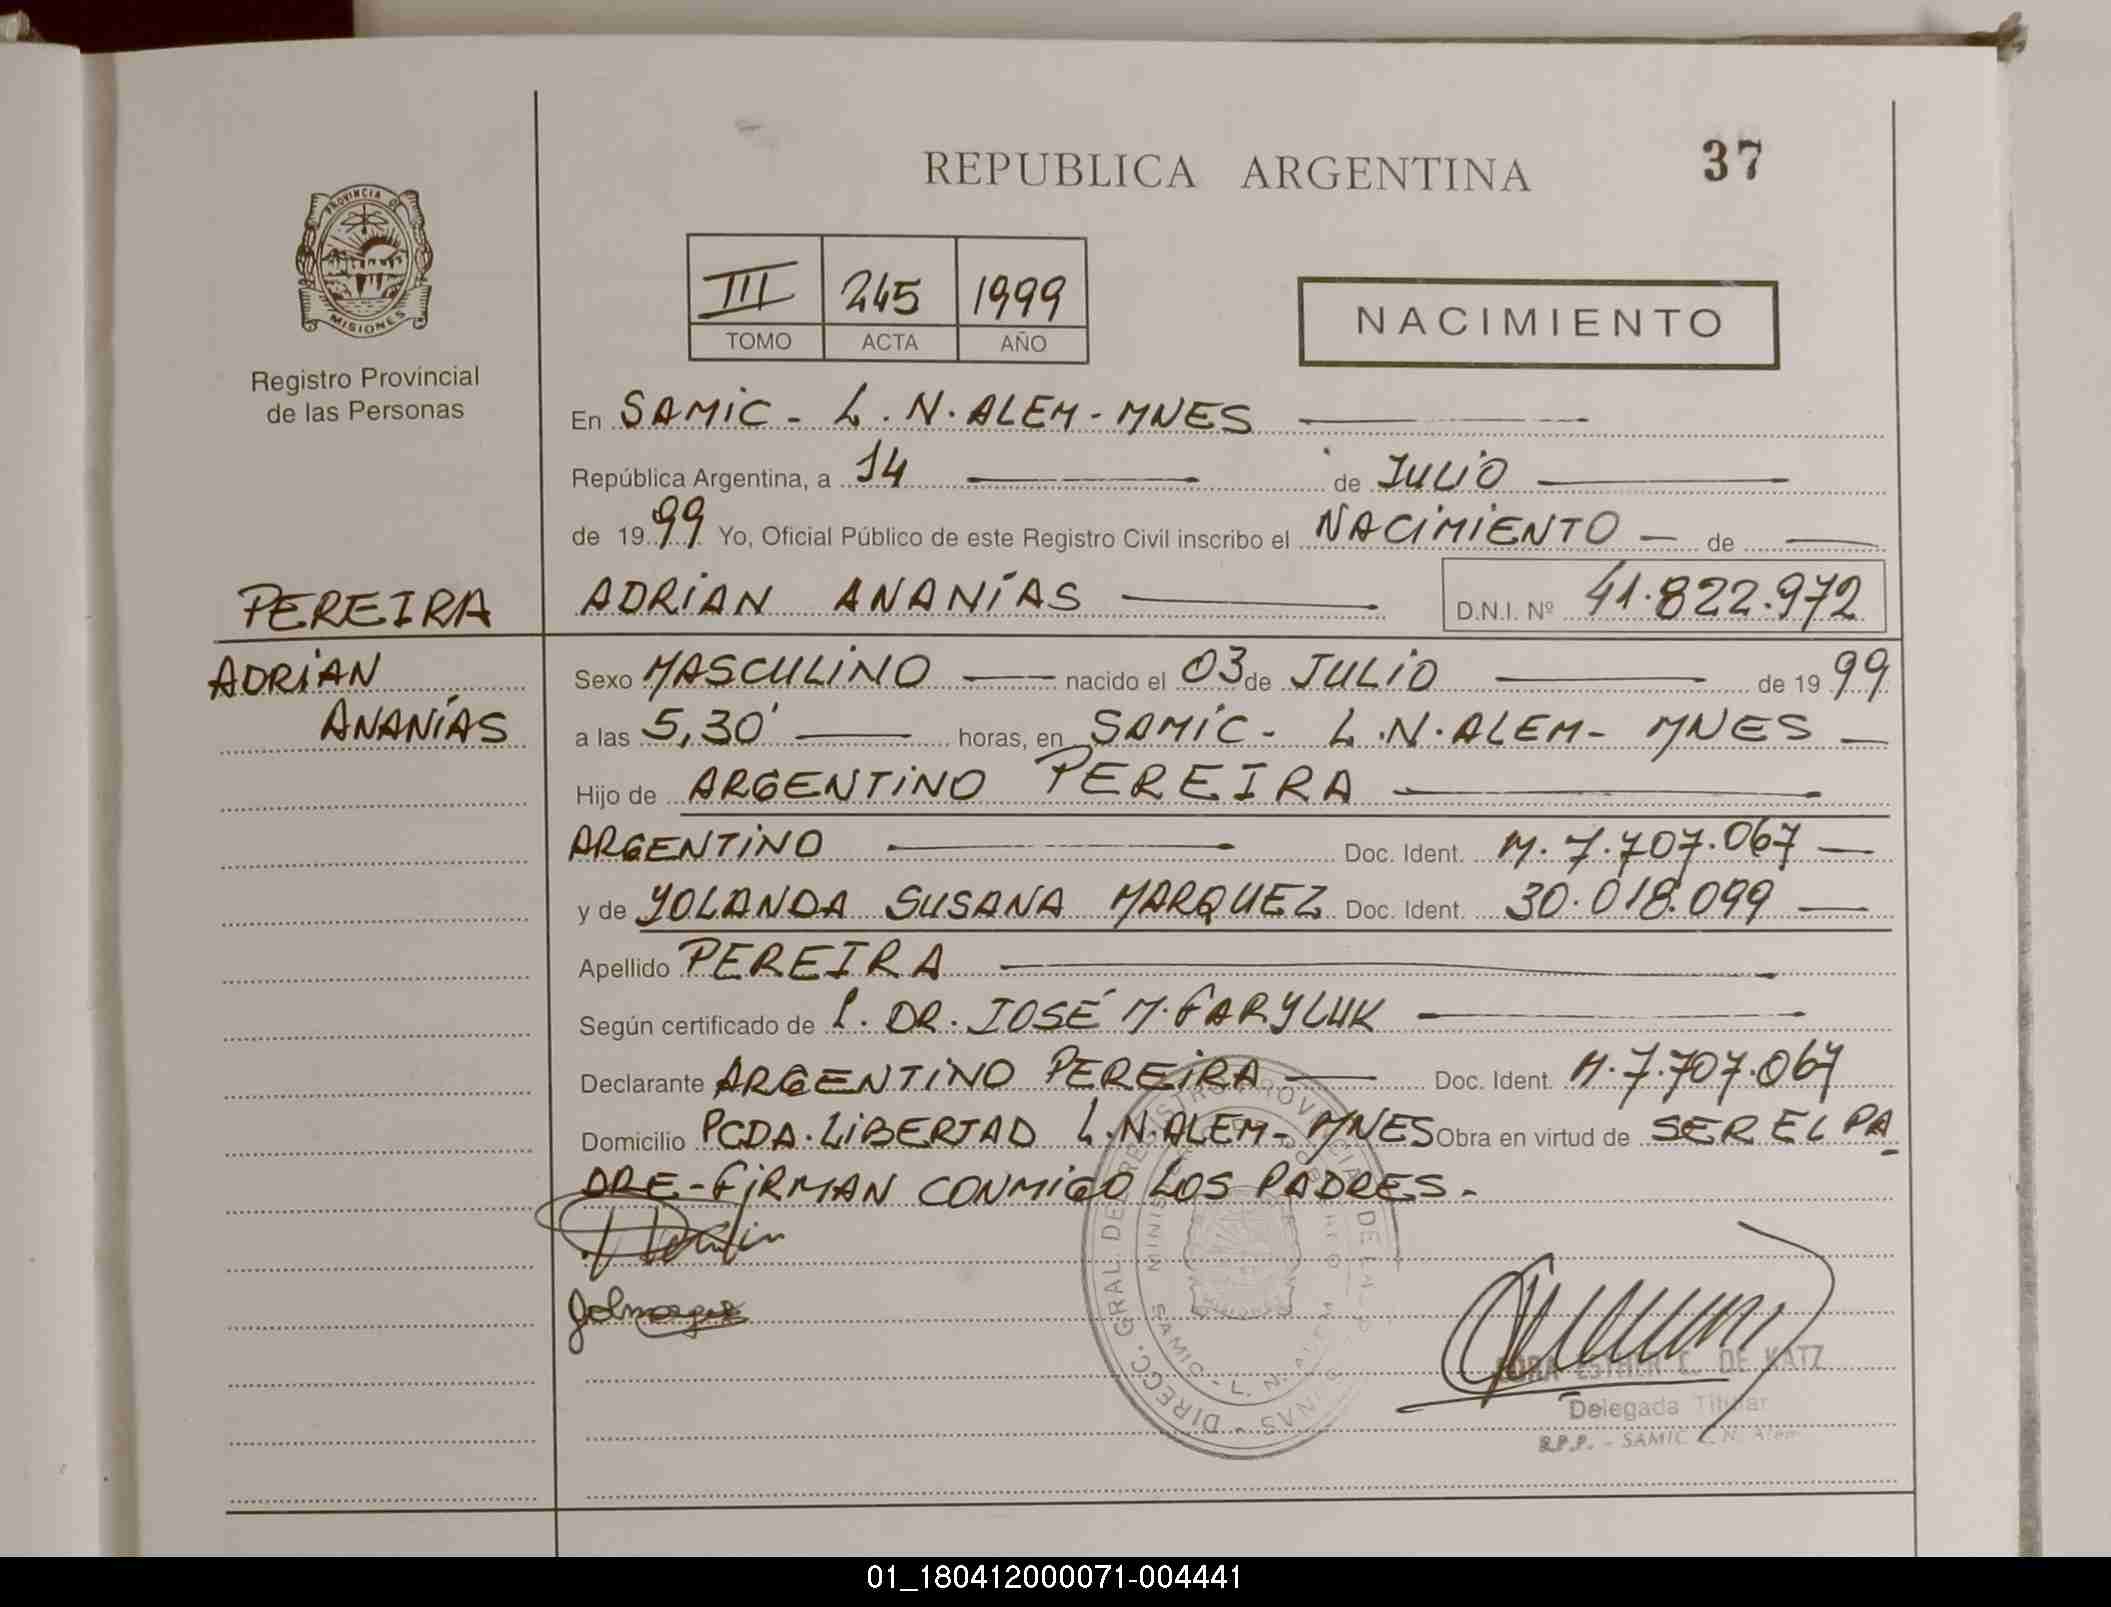 REPUBLICA ARGENTINA
37
PROVINCIA DE
MISIONES
Registro Provincial
de las Personas
III 245 1999
TOMO ACTA AÑO
NACIMIENTO
En SAMIC - L. N. ALEM - MNES
República Argentina, a 14 de JULIO
de 1999 Yo, Oficial Público de este Registro Civil inscribo el NACIMIENTO de
PEREIRA
ADRIAN ANANÍAS D.N.I. Nº 41.822.972
ADRIAN
ANANÍAS
Sexo MASCULINO nacido el 03 de JULIO de 1999
a las 5,30' horas, en SAMIC - L.N. ALEM - MNES
Hijo de ARGENTINO PEREIRA
ARGENTINO Doc. Ident. M. 7.707.067
y de YOLANDA SUSANA MARQUEZ Doc. Ident. 30.018.099
Apellido PEREIRA
Según certificado de DR. JOSÉ M. GARYLUK
Declarante ARGENTINO PEREIRA Doc. Ident. M. 7.707.067
Domicilio PCDA. LIBERTAD L.N. ALEM - MNES Obra en virtud de SER EL PA
DRE - FIRMAN CONMIGO LOS PADRES.-
ESTHER C. DE KATZ
Delegada Titular
R.P.P. - SAMIC L. N. Alem
01_180412000071-004441